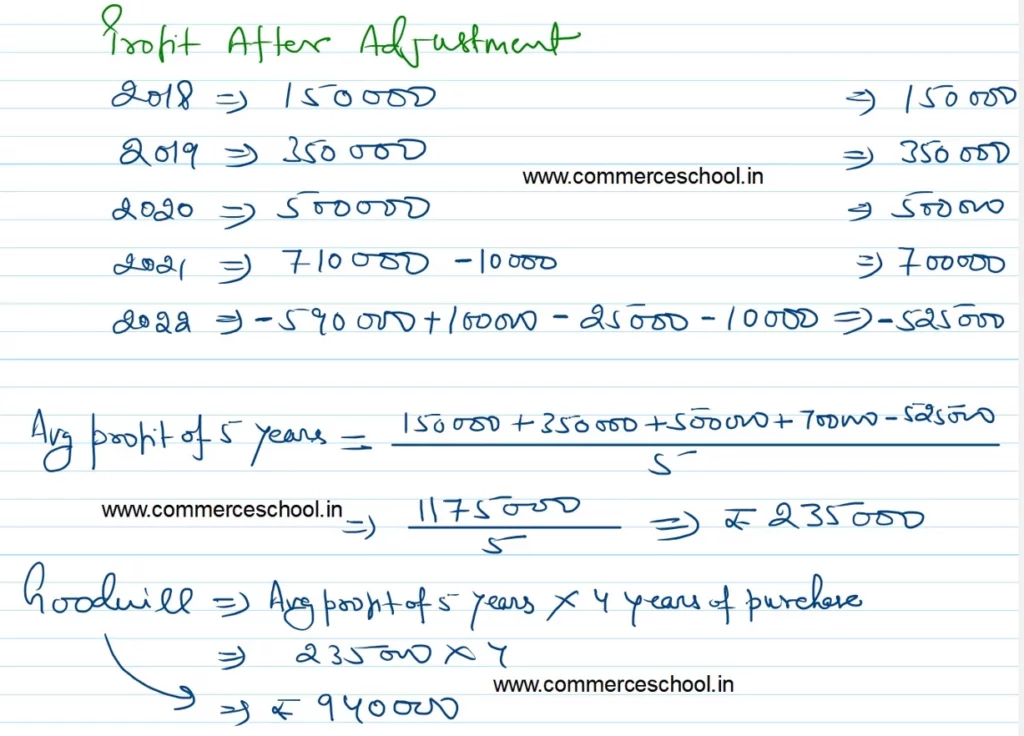 Profit After Adjustment
2018 ⇒ 150000 ⇒ 150000
2019 ⇒ 350000 ⇒ 350000
www.commerceschool.in
2020 ⇒ 500000 ⇒ 500000
2021 ⇒ 710000 - 10000 ⇒ 700000
2022 ⇒ -590000 + 100000 - 25000 - 10000 ⇒ -525000
Avg profit of 5 years = 150000 + 350000 + 500000 + 700000 - 525000
5
www.commerceschool.in
⇒ 1175000 ⇒ ₹ 235000
5
Goodwill ⇒ Avg profit of 5 years × 4 years of purchase
⇒ 235000 × 4
www.commerceschool.in
⇒ ₹ 940000